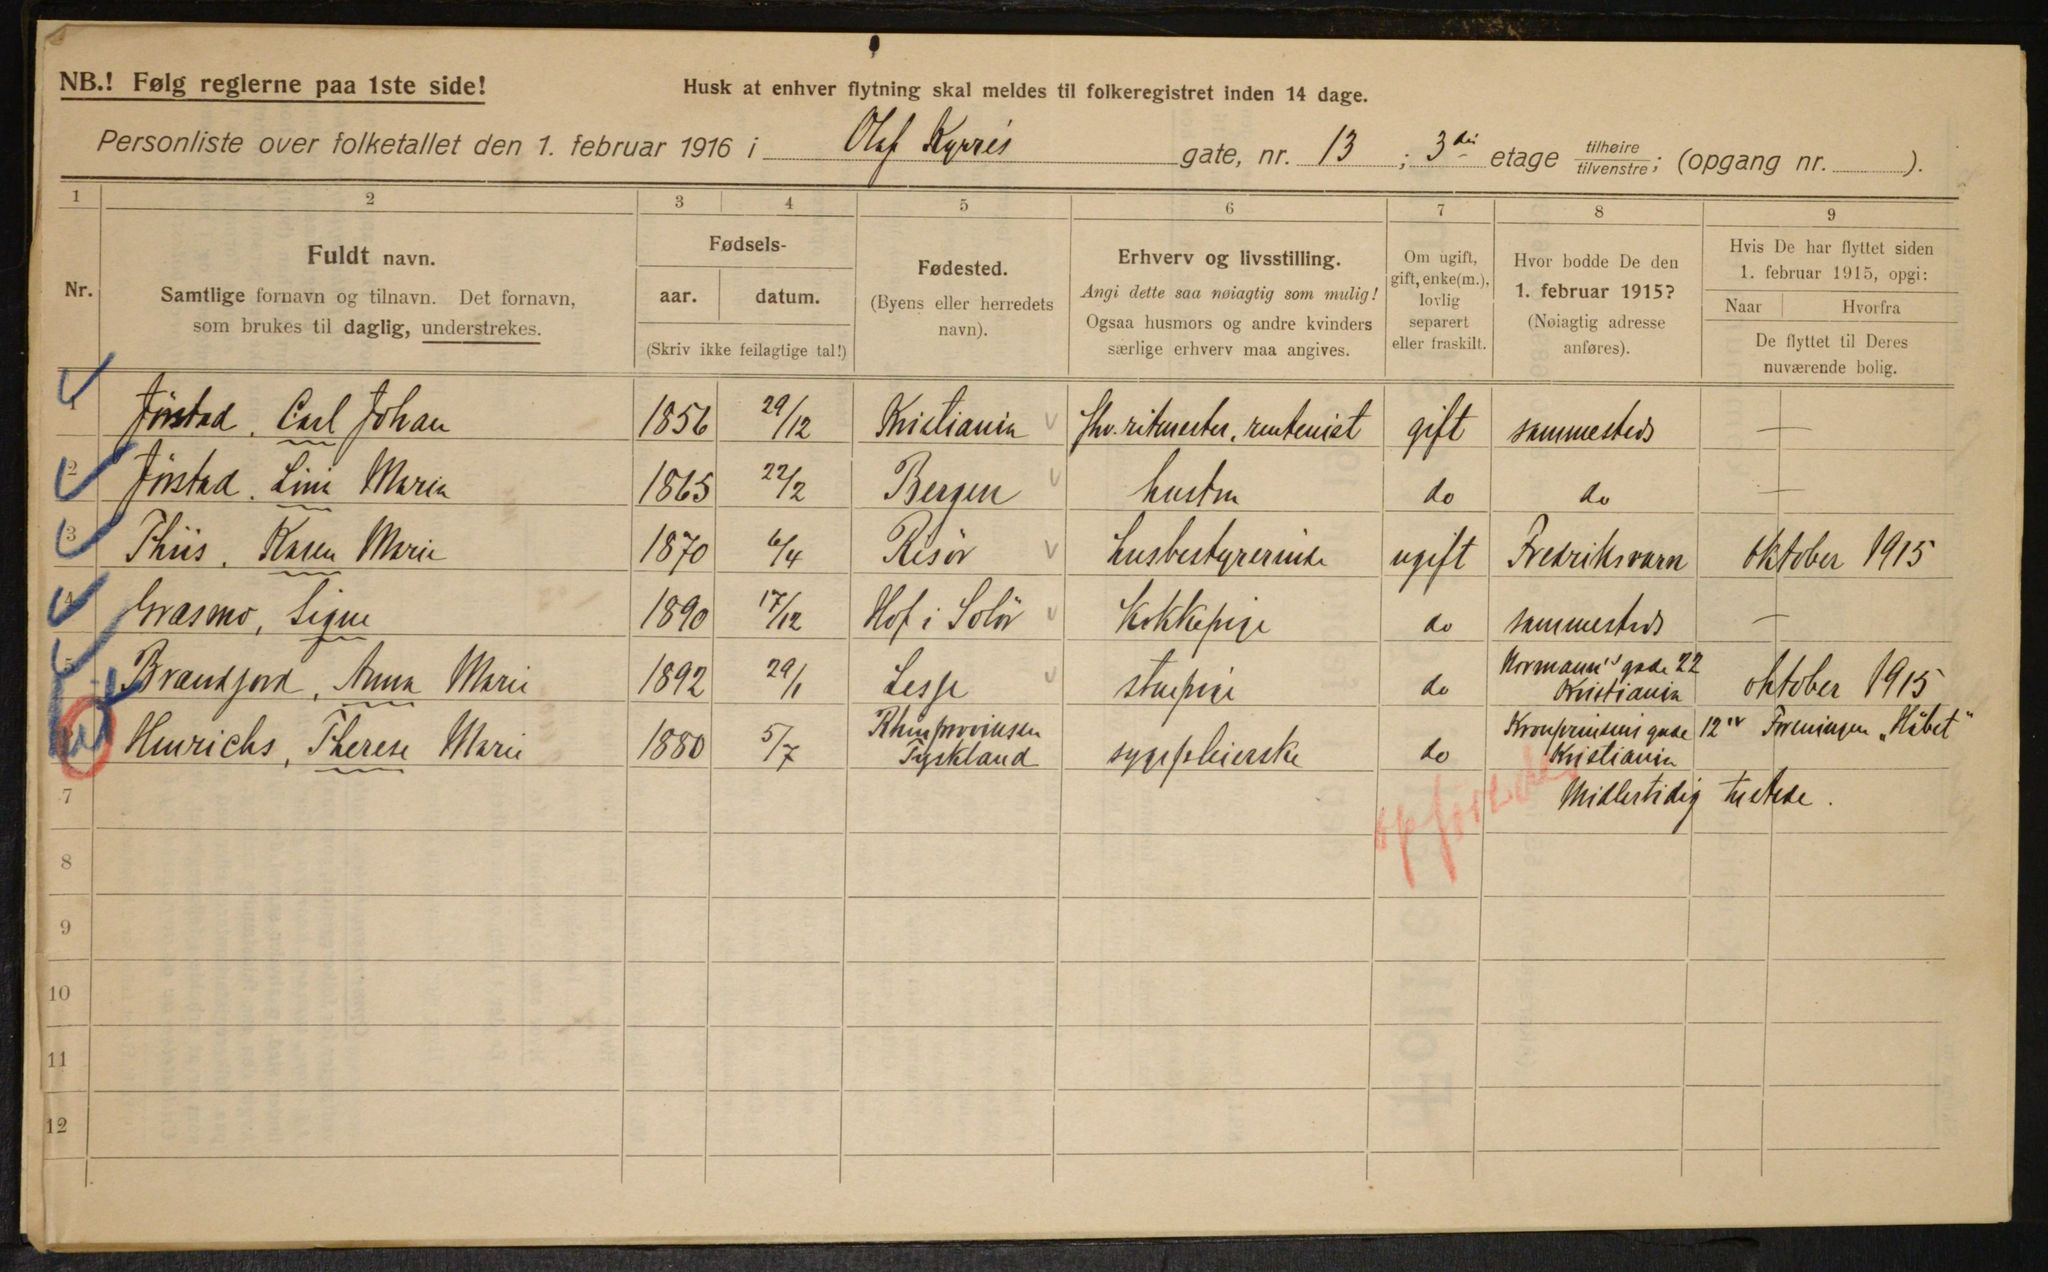 NB.! Følg reglerne paa 1ste side!
Husk at enhver flytning skal meldes til folkeregistret inden 14 dage.
Personliste over folketallet den 1. februar 1916 i Olaf Kyrrés gate, nr. 13 ; 3die etage tilhøire tilvenstre; (opgang nr. ).
1 2 3 4 5 6 7 8 9
Nr.
Fuldt navn.
Samtlige fornavn og tilnavn. Det fornavn,
som brukes til daglig, understrekes.
Fødsels-
aar. datum.
(Skriv ikke feilagtige tal!)
Fødested.
(Byens eller herredets
navn).
Erhverv og livsstilling.
Angi dette saa nøiagtig som mulig!
Ogsaa husmors og andre kvinders
særlige erhverv maa angives.
Om ugift,
gift, enke(m.),
lovlig
separert
eller fraskilt.
Hvor bodde De den
1. februar 1915?
(Nøiagtig adresse
anføres).
Hvis De har flyttet siden
1. februar 1915, opgi:
Naar Hvorfra
De flyttet til Deres
nuværende bolig.
1 Jørstad, Carl Johan 1856 29/12 Kristiania fhv. ritmester, rentenist gift sammesteds —
2 Jørstad, Lini Maria 1865 22/2 Bergen hustru do do —
3 Thiis, Karen Marie 1870 6/4 Risör husbestyrerinde ugift Fredriksvärn oktober 1915
4 Græsmo, Signe 1890 17/12 Hof i Solör kokkepige do sammesteds —
5 Brændjord, Anna Marie 1892 29/1 Lesje stuepige do Normann's gade 22 Kristiania oktober 1915
Hinrichs, Therese Marie 1880 5/7 Rhinprovinsen Tyskland sygepleierske do Kronprinsens gade 12 IV Foreningen „Håbet" Kristiania
7 Midlertidig tilstede.
8
9
10
11
12